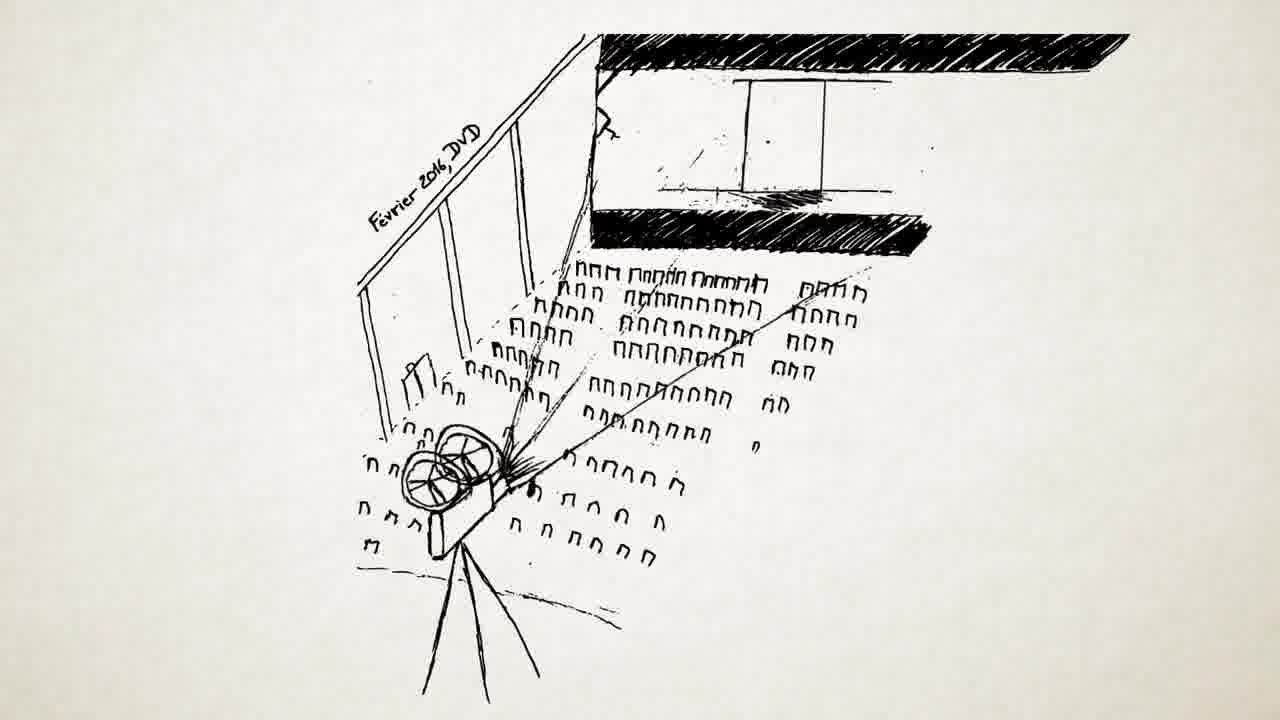 Février 2016, DVD